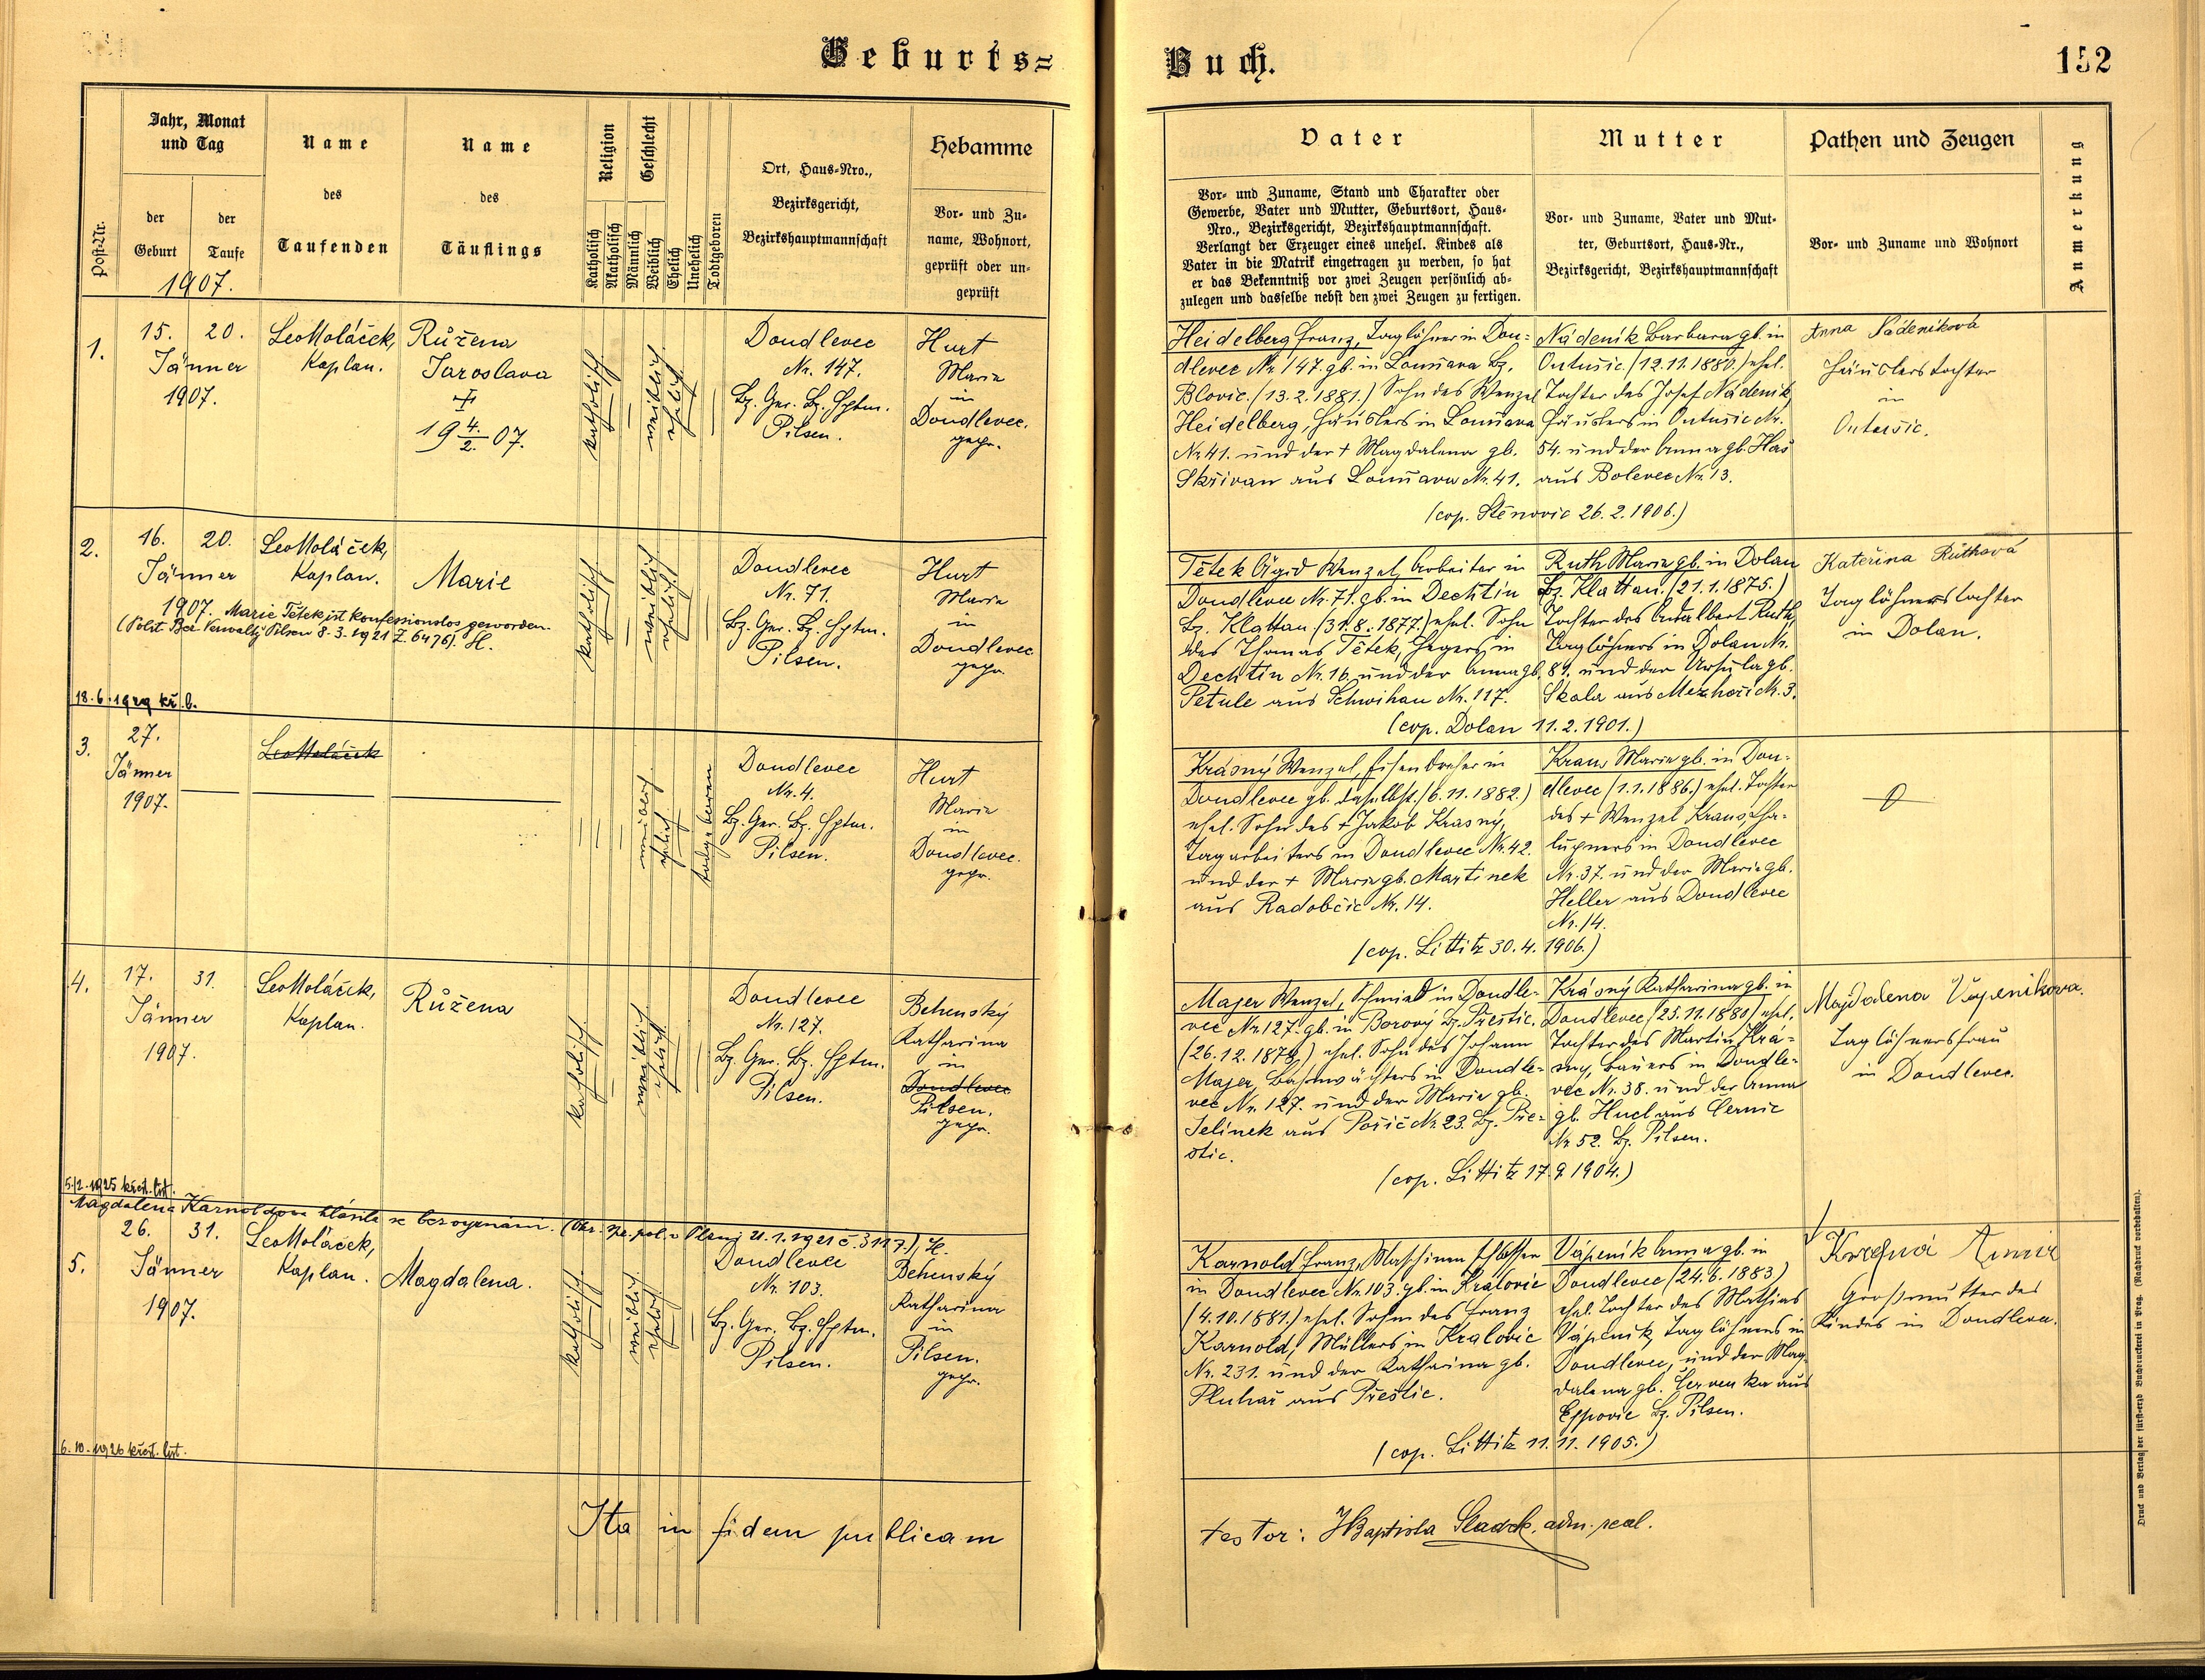 Geburts=
Buch.
152
Post-Nr.
Jahr, Monat
und Tag
der
Geburt
der
Taufe
1907.
Name
des
Taufenden
Name
des
Täuflings
Religion
Katholisch
Akatholisch
Geschlecht
Männlich
Weiblich
Ehelich
Unehelich
Todtgeboren
Ort, Haus-Nro.,
Bezirksgericht,
Bezirkshauptmannschaft
Hebamme
Vor- und Zu-
name, Wohnort,
geprüft oder un-
geprüft
Vater
Vor- und Zuname, Stand und Charakter oder
Gewerbe, Vater und Mutter, Geburtsort, Haus-
Nro., Bezirksgericht, Bezirkshauptmannschaft.
Verlangt der Erzeuger eines unehel. Kindes als
Vater in die Matrik eingetragen zu werden, so hat
er das Bekenntniß vor zwei Zeugen persönlich ab-
zulegen und dasselbe nebst den zwei Zeugen zu fertigen.
Mutter
Vor- und Zuname, Vater und Mut-
ter, Geburtsort, Haus-Nr.,
Bezirksgericht, Bezirkshauptmannschaft
Pathen und Zeugen
Vor- und Zuname und Wohnort
Anmerkung
1.
15. 20.
Jänner
1907.
Leo Moláček,
Kaplan.
Růžena
Jaroslava
19 4./2. 07.
katholisch
weiblich
ehelich
Doudlevec
Nr. 147.
Bz. Ger. Bz. Hptm.
Pilsen.
Hurt
Marie
in
Doudlevec.
gepr.
Heidelberg Franz, Taglöhner in Dou-
dlevec Nr. 147. gb. in Lounava Bz.
Blovic. (13.2.1881.) Sohn des Wenzel
Heidelberg, Häuslers in Lounava
Nr. 41. und der + Magdalena gb.
Skřivan aus Lounava Nr. 41.
Nádeník Barbara gb. in
Ontušic. (12.11.1880.) ehel.
Tochter des Josef Nádeník
Häuslers in Ontušic Nr.
54. und der Anna gb. Has
aus Bolevec Nr. 13.
(cop. Stěnovic 26.2.1906.)
Anna Nádeníková
Häuslerstochter
in
Ontušic.
2.
16. 20.
Jänner
1907.
Leo Moláček,
Kaplan.
Marie
Marie Tětek ist konfessionslos geworden.
(Polit. Bez. Verwaltg Pilsen 8.3.1921 Z. 6476). H.
18.6.1929 kř. l.
katholisch
weiblich
ehelich
Doudlevec
Nr. 71.
Bz. Ger. Bz. Hptm.
Pilsen.
Hurt
Marie
in
Doudlevec
gepr.
Tětek Ägid Wenzel, Arbeiter in
Doudlevec Nr. 71. gb. in Dechtin
Bz. Klattau. (31.8.1877.) ehel. Sohn
des Thomas Tětek, Hegers in
Dechtin Nr. 16. und der Anna gb.
Petule aus Schwihau Nr. 117.
Ruth Marie gb. in Dolan
Bz. Klattau. (21.1.1875.)
Tochter des Adalbert Ruth,
Taglöhners in Dolan Nr.
81. und der Ursula gb.
Skala aus Mezhoří Nr. 3.
(cop. Dolan 11.2.1901.)
Kateřina Rúthová
Taglöhnerstochter
in Dolan.
3.
27.
Jänner
1907.
Leo Moláček
weiblich
ehelich
todgeboren
Doudlevec
Nr. 4.
Bz. Ger. Bz. Hptm.
Pilsen.
Hurt
Marie
in
Doudlevec.
gepr.
Krásný Wenzel, Eisendreher in
Doudlevec gb. daselbst. (6.11.1882.)
ehel. Sohn des + Jakob Krasný,
Tagarbeiters in Doudlevec Nr. 42.
und der + Marie gb. Martinek
aus Radobčic Nr. 14.
Kraus Marie gb. in Dou-
dlevec (1.1.1886.) ehel. Tochter
des + Wenzel Kraus, Cha-
lupners in Doudlevec
Nr. 37. und der Marie gb.
Heller aus Doudlevec
Nr. 14.
(cop. Littitz 30.4.1906.)
4.
17. 31.
Jänner
1907.
Leo Moláček,
Kaplan.
Růžena
5./2.1925 křest. list.
katholisch
weiblich
ehelich
Doudlevec
Nr. 127.
Bz. Ger. Bz. Hptm.
Pilsen.
Behenský
Katharina
in
Doudlevec
Pilsen.
gepr.
Majer Wenzel, Schmied in Doudle-
vec Nr. 127. gb. in Borový Bz. Přestic.
(26.12.1879) ehel. Sohn des Johann
Majer, Bahnwächters in Doudle-
vec Nr. 127. und der Marie gb.
Jelínek aus Poříč Nr. 23. Bz. Pře-
stic.
Krásný Katharina gb. in
Doudlevec (25.11.1880) ehel.
Tochter des Martin Krá-
sný, Bauers in Doudle-
vec Nr. 38. und der Anna
gb. Hucl aus Černic
Nr. 52. Bz. Pilsen.
(cop. Littitz 17.9.1904.)
Majdalena Vapenikova.
Taglöhnersfrau
in Doudlevec.
Magdalena Karnoldova hlásila se bez vyznání. (Okr. spr. pol. v Plzni 21.1.1921 č. 3117.), H.
5.
26. 31.
Jänner
1907.
Leo Moláček,
Kaplan.
Magdalena.
6.10.1926 křest. list.
katholisch
weiblich
ehelich
Doudlevec
Nr. 103.
Bz. Ger. Bz. Hptm.
Pilsen.
Behenský
Katharina
in
Pilsen.
gepr.
Karnold Franz, Maschinenschlosser
in Doudlevec Nr. 103. gb. in Kralovic
(4.10.1881.) ehel. Sohn des Franz
Karnold, Müllers in Kralovic
Nr. 231. und der Katharina gb.
Pluhař aus Přestic.
Vápeník Anna gb. in
Doudlevec (24.6.1883)
ehel. Tochter des Mathias
Vápeník, Taglöhners in
Doudlevec, und der Mag-
dalena gb. Červenka aus
Ejpovic Bz. Pilsen.
(cop. Littitz 11.11.1905.)
Großmutter des
Kindes in Doudlevec.
Ita in fidem publicam
testor: J Baptista Sladek, adm. pcal.
Druck und Verlag der fürst-erzb Buchdruckerei in Prag. (Nachdruck vorbehalten).